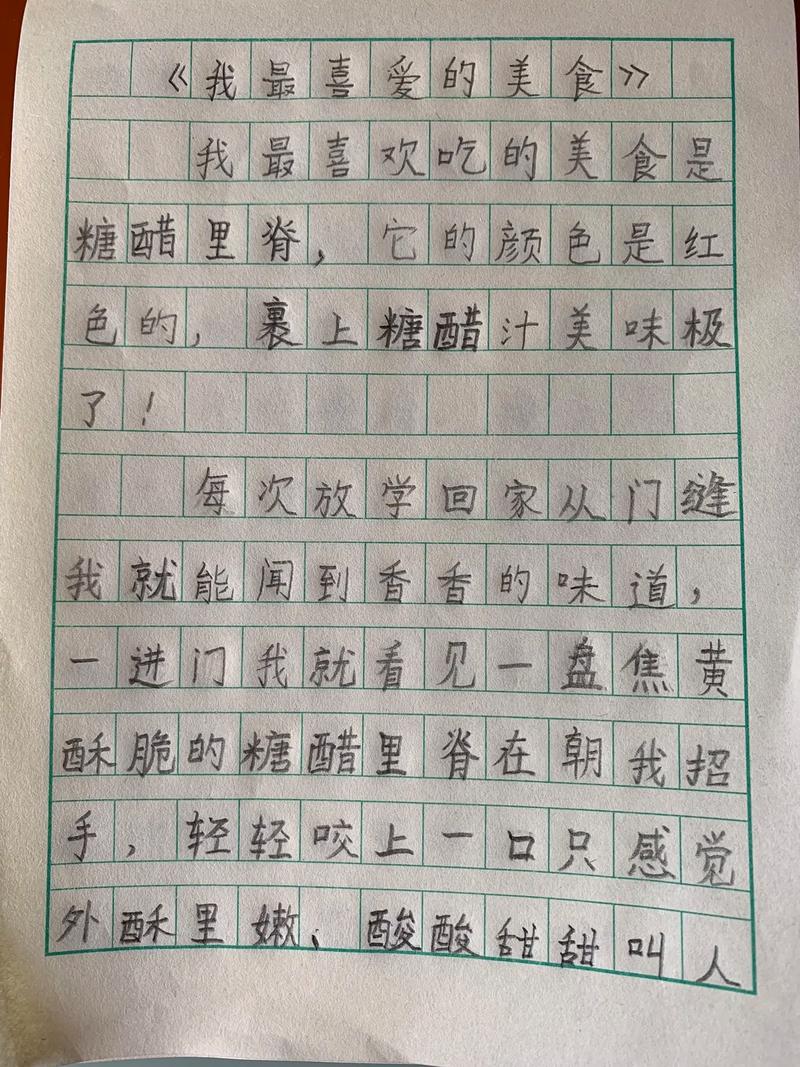 《我最喜爱的美食》
我最喜欢吃的美食是
糖醋里脊，它的颜色是红
色的，裹上糖醋汁美味极
了！
每次放学回家从门缝
我就能闻到香香的味道，
一进门我就看见一盘焦黄
酥脆的糖醋里脊在朝我招
手，轻轻咬上一口只感觉
外酥里嫩、酸酸甜甜叫人